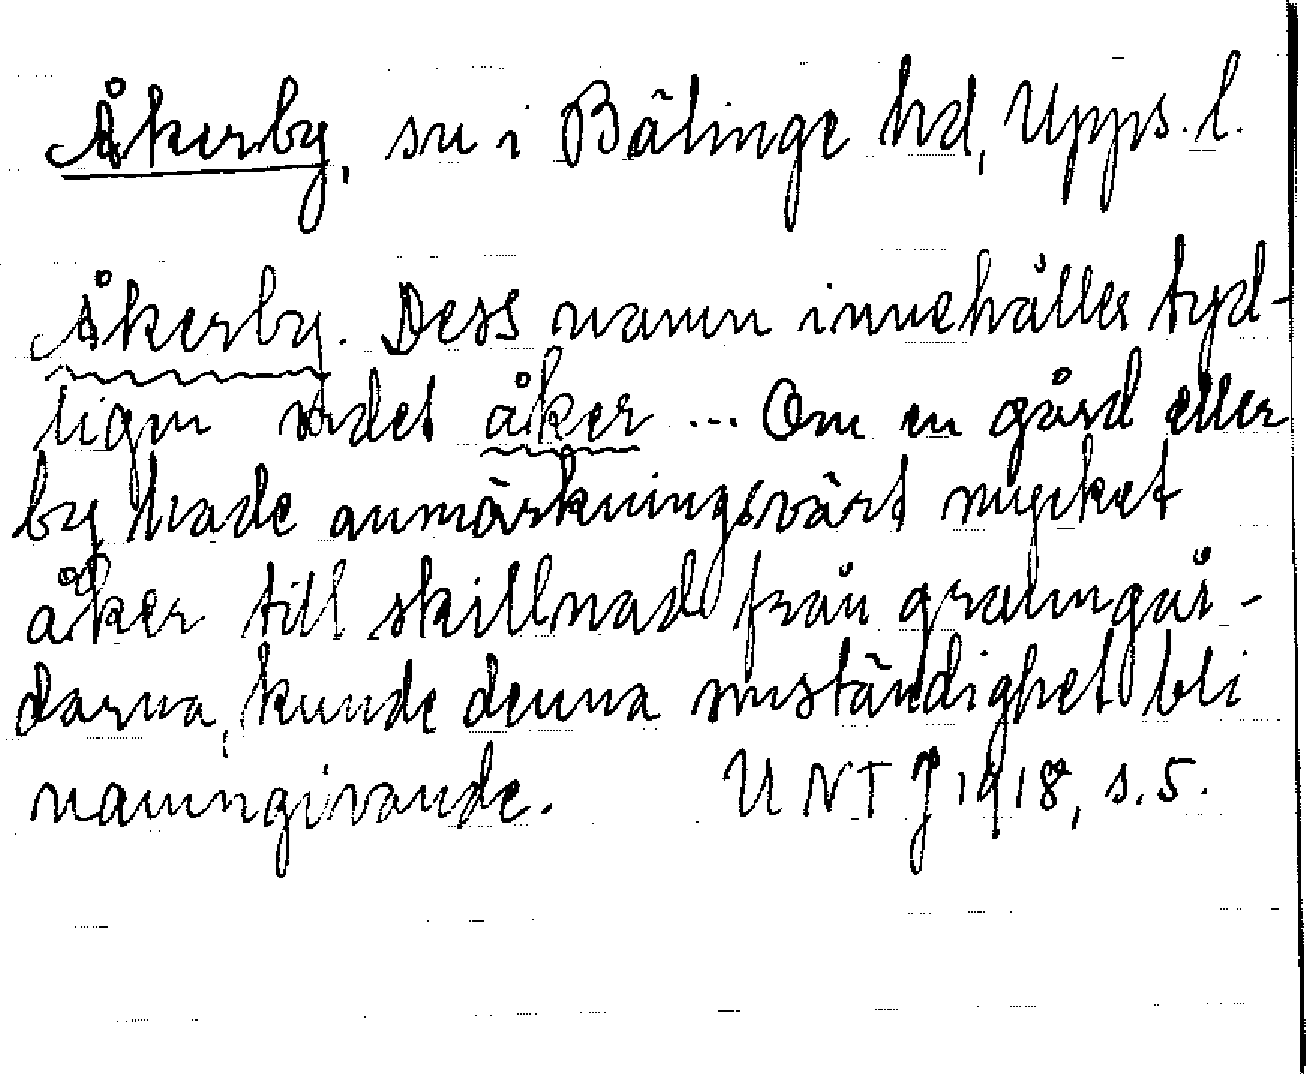 Åkerby, sn i Bälinge hd, Upps. l.
Åkerby. Dess namn innehåller tyd-
ligen ordet åker ... Om en gård eller
by hade anmärkningsvärt mycket
åker till skillnad från granngår-
darna, kunde denna omständighet bli
namngivande. UNT J 1918, s. 5.